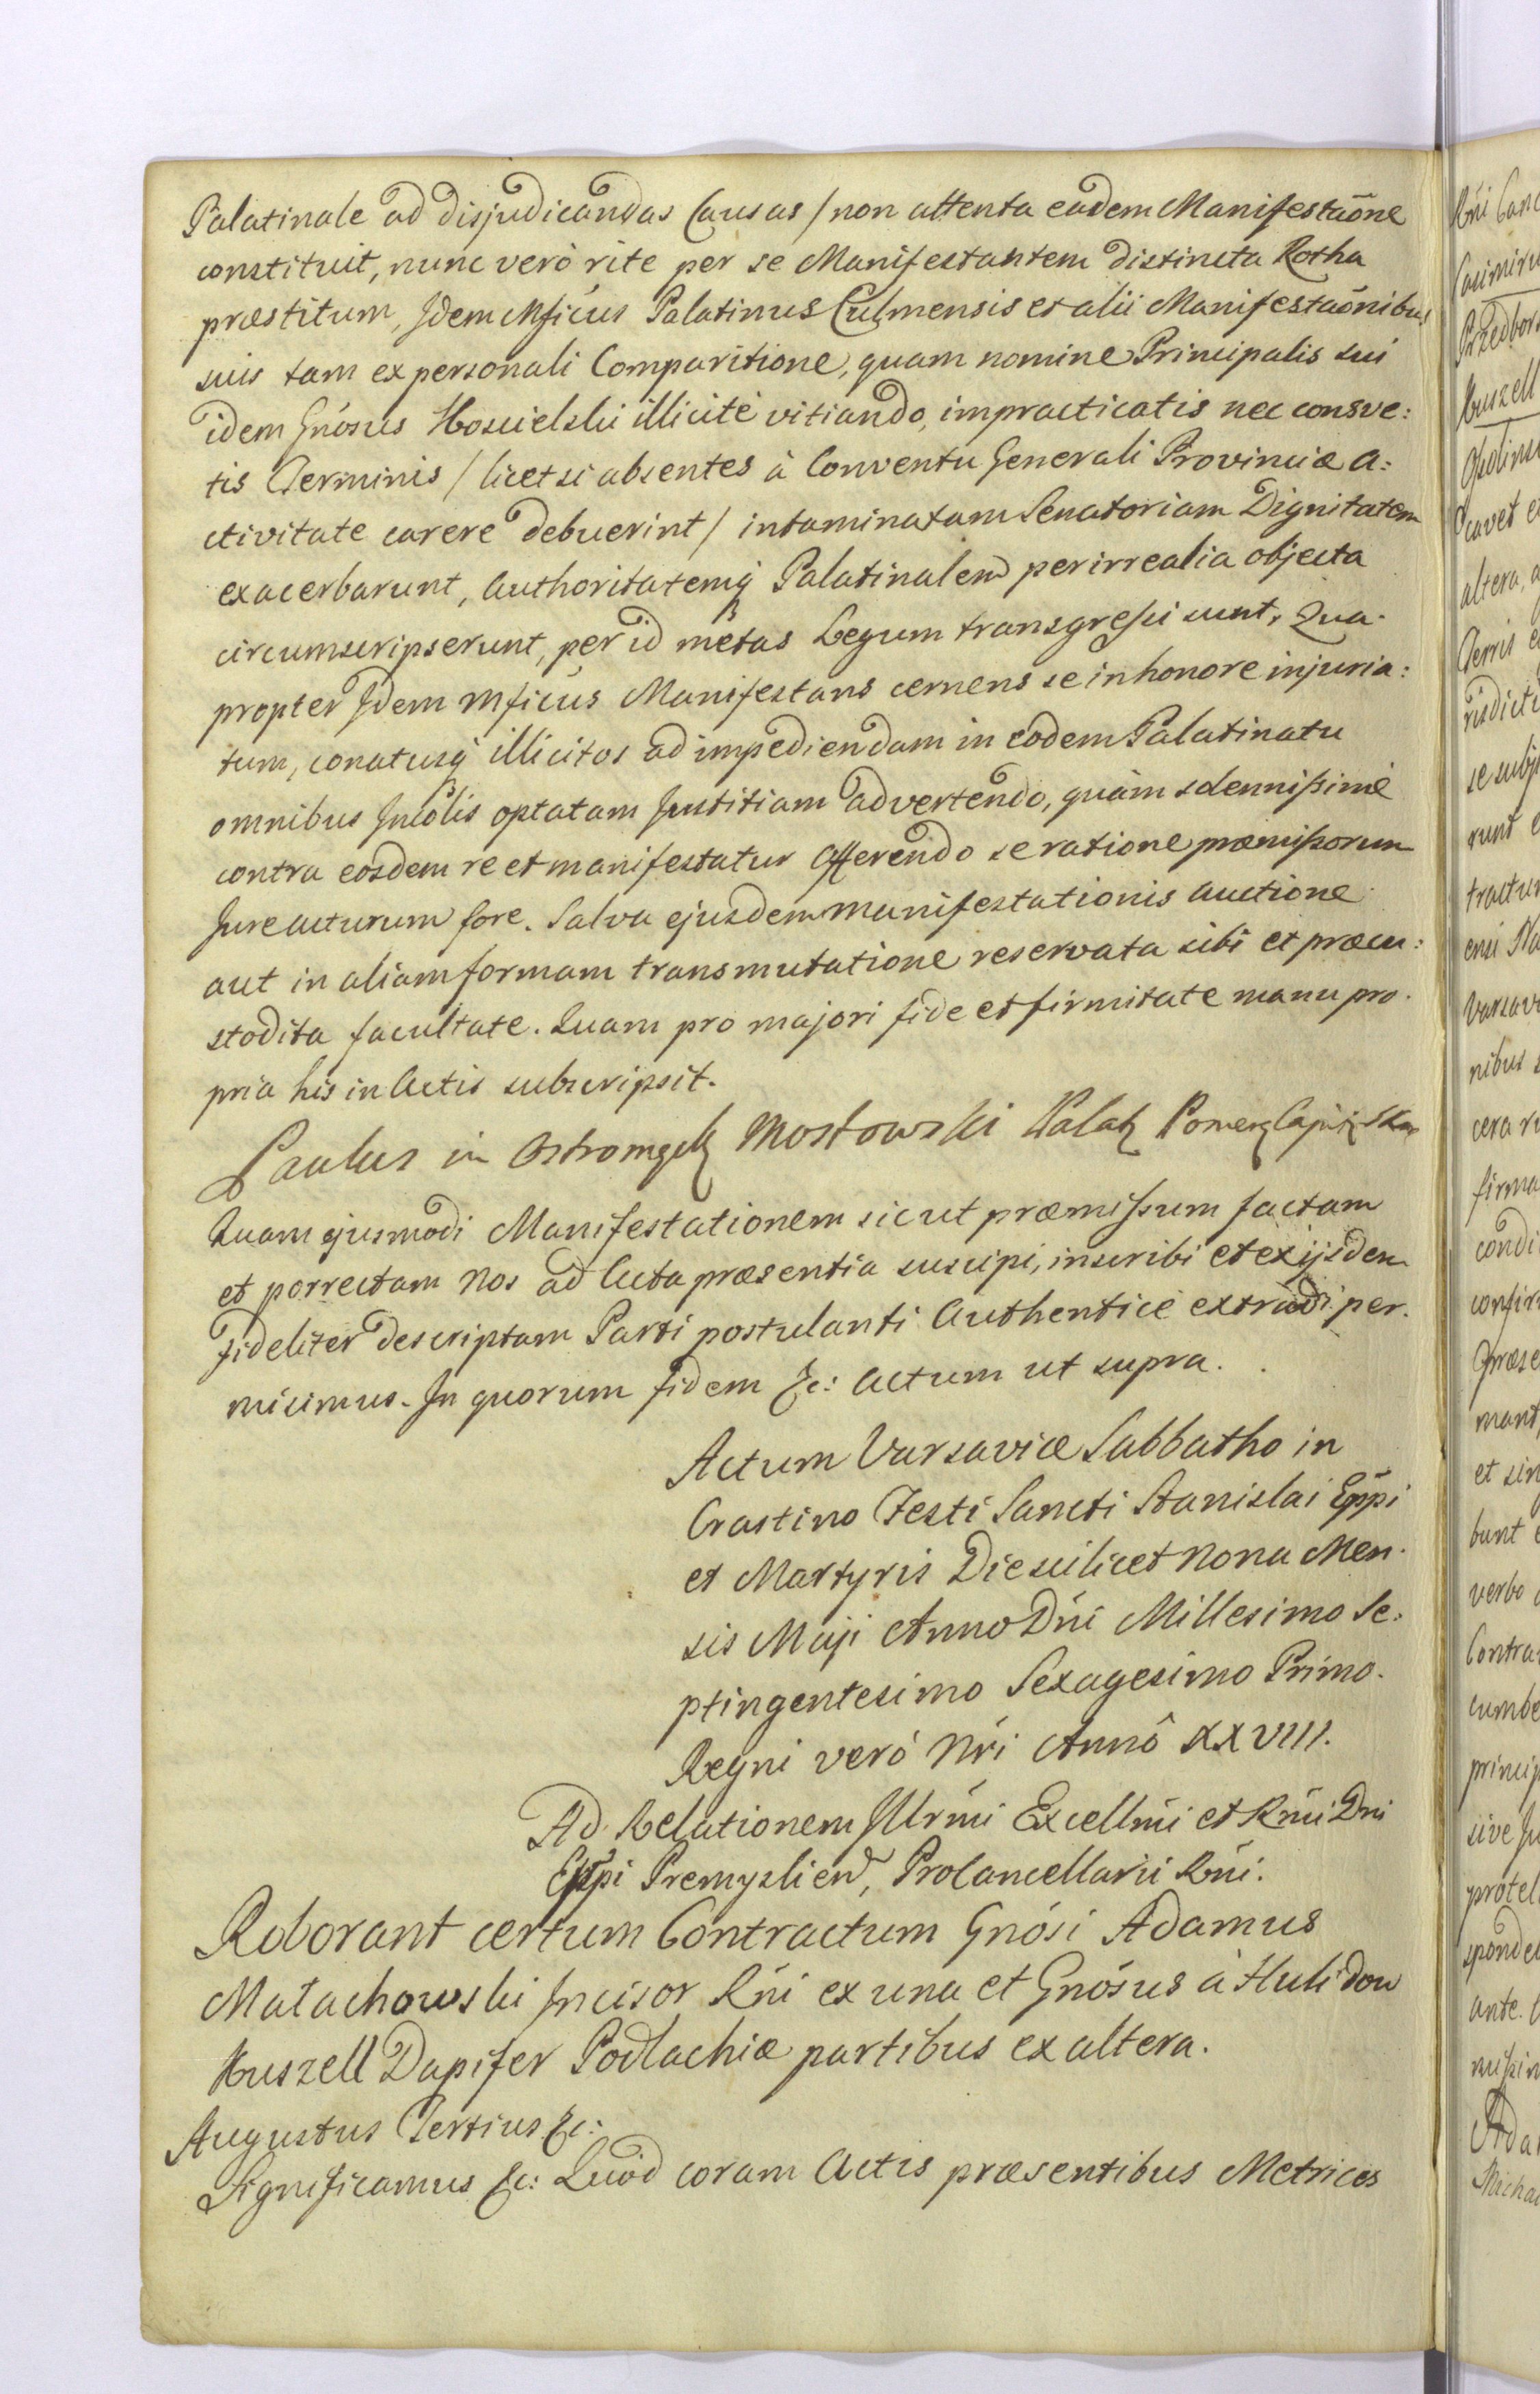 Palatinale ad disjudicandas Causas / non attenta eadem Manifestaõne
constituit, nunc verò rite per se Manifestantem distincta Rotha
præstitum, Idem Mficus Palatinus Culmensis et alii Manifestaõnibus
suis tam ex personali Comparitione, quam nomine Principalis sui
idem Gnosus Koscielski illicitè vitiando, impracticatis nec consve:
tis Terminis / licet si absentes à Conventu Generali Provinciæ a:
ctivitate carere debuerint / intaminatam Senatoriam Dignitatem
exacerbarunt, Authoritatemq Palatinalem per irrealia objecta
circumscripserunt, per id metas Legum transgreßi sunt, Qua-
propter Idem Mficus Manifestans cernens se in honore injuria:
tum, conatusq illicitos ad impediendam in eodem Palatinatu
omnibus Incolis optatam Justitiam advertendo, quàm solennißimè
contra eosdem re et manifestatur Offerendo se ratione præmißorum
Jure acturum fore. Salva ejusdem Manifestationis auctione
aut in aliam formam transmutatione reservata sibi et præcu:
stodita facultate. Quam pro majori fide et firmitate manu pro-
pria his in Actis subscripsit.
Paulus in Ostromęck Mostowski Palat Pomer Capit
Quam ejusmodi Manifestationem sicut præmißum factam
et porrectam Nos ad Acta præsentia suscipi, inscribi et ex ijsdem
fideliter descriptam Parti postulanti Authenticè extradi per-
misimus. In quorum fidem &c: Actum ut supra.
Actum Varsaviæ Sabbatho in
Crastino Festi Sancti Stanislai Eppi
et Martyris Die scilicet Nona Men-
sis Maji Anno Dni Millesimo Se:
ptingentesimo Sexagesimo Primo.
Regni verò Nri Annô XXVIII.
Ad Relationem Illrmi Excellmi et Rmi Dni
Eppi Premyslien, ProCancellarii Rni.
Roborant certum Contractum Gnosi Adamus
Małachowski Incisor Rni ex una et Gnosus à Huli Dow
Kuszell Dapifer Podlachiæ partibus ex altera.
Augustus Tertius &c:
Significamus &c: Quod coram Actis præsentibus Metrices